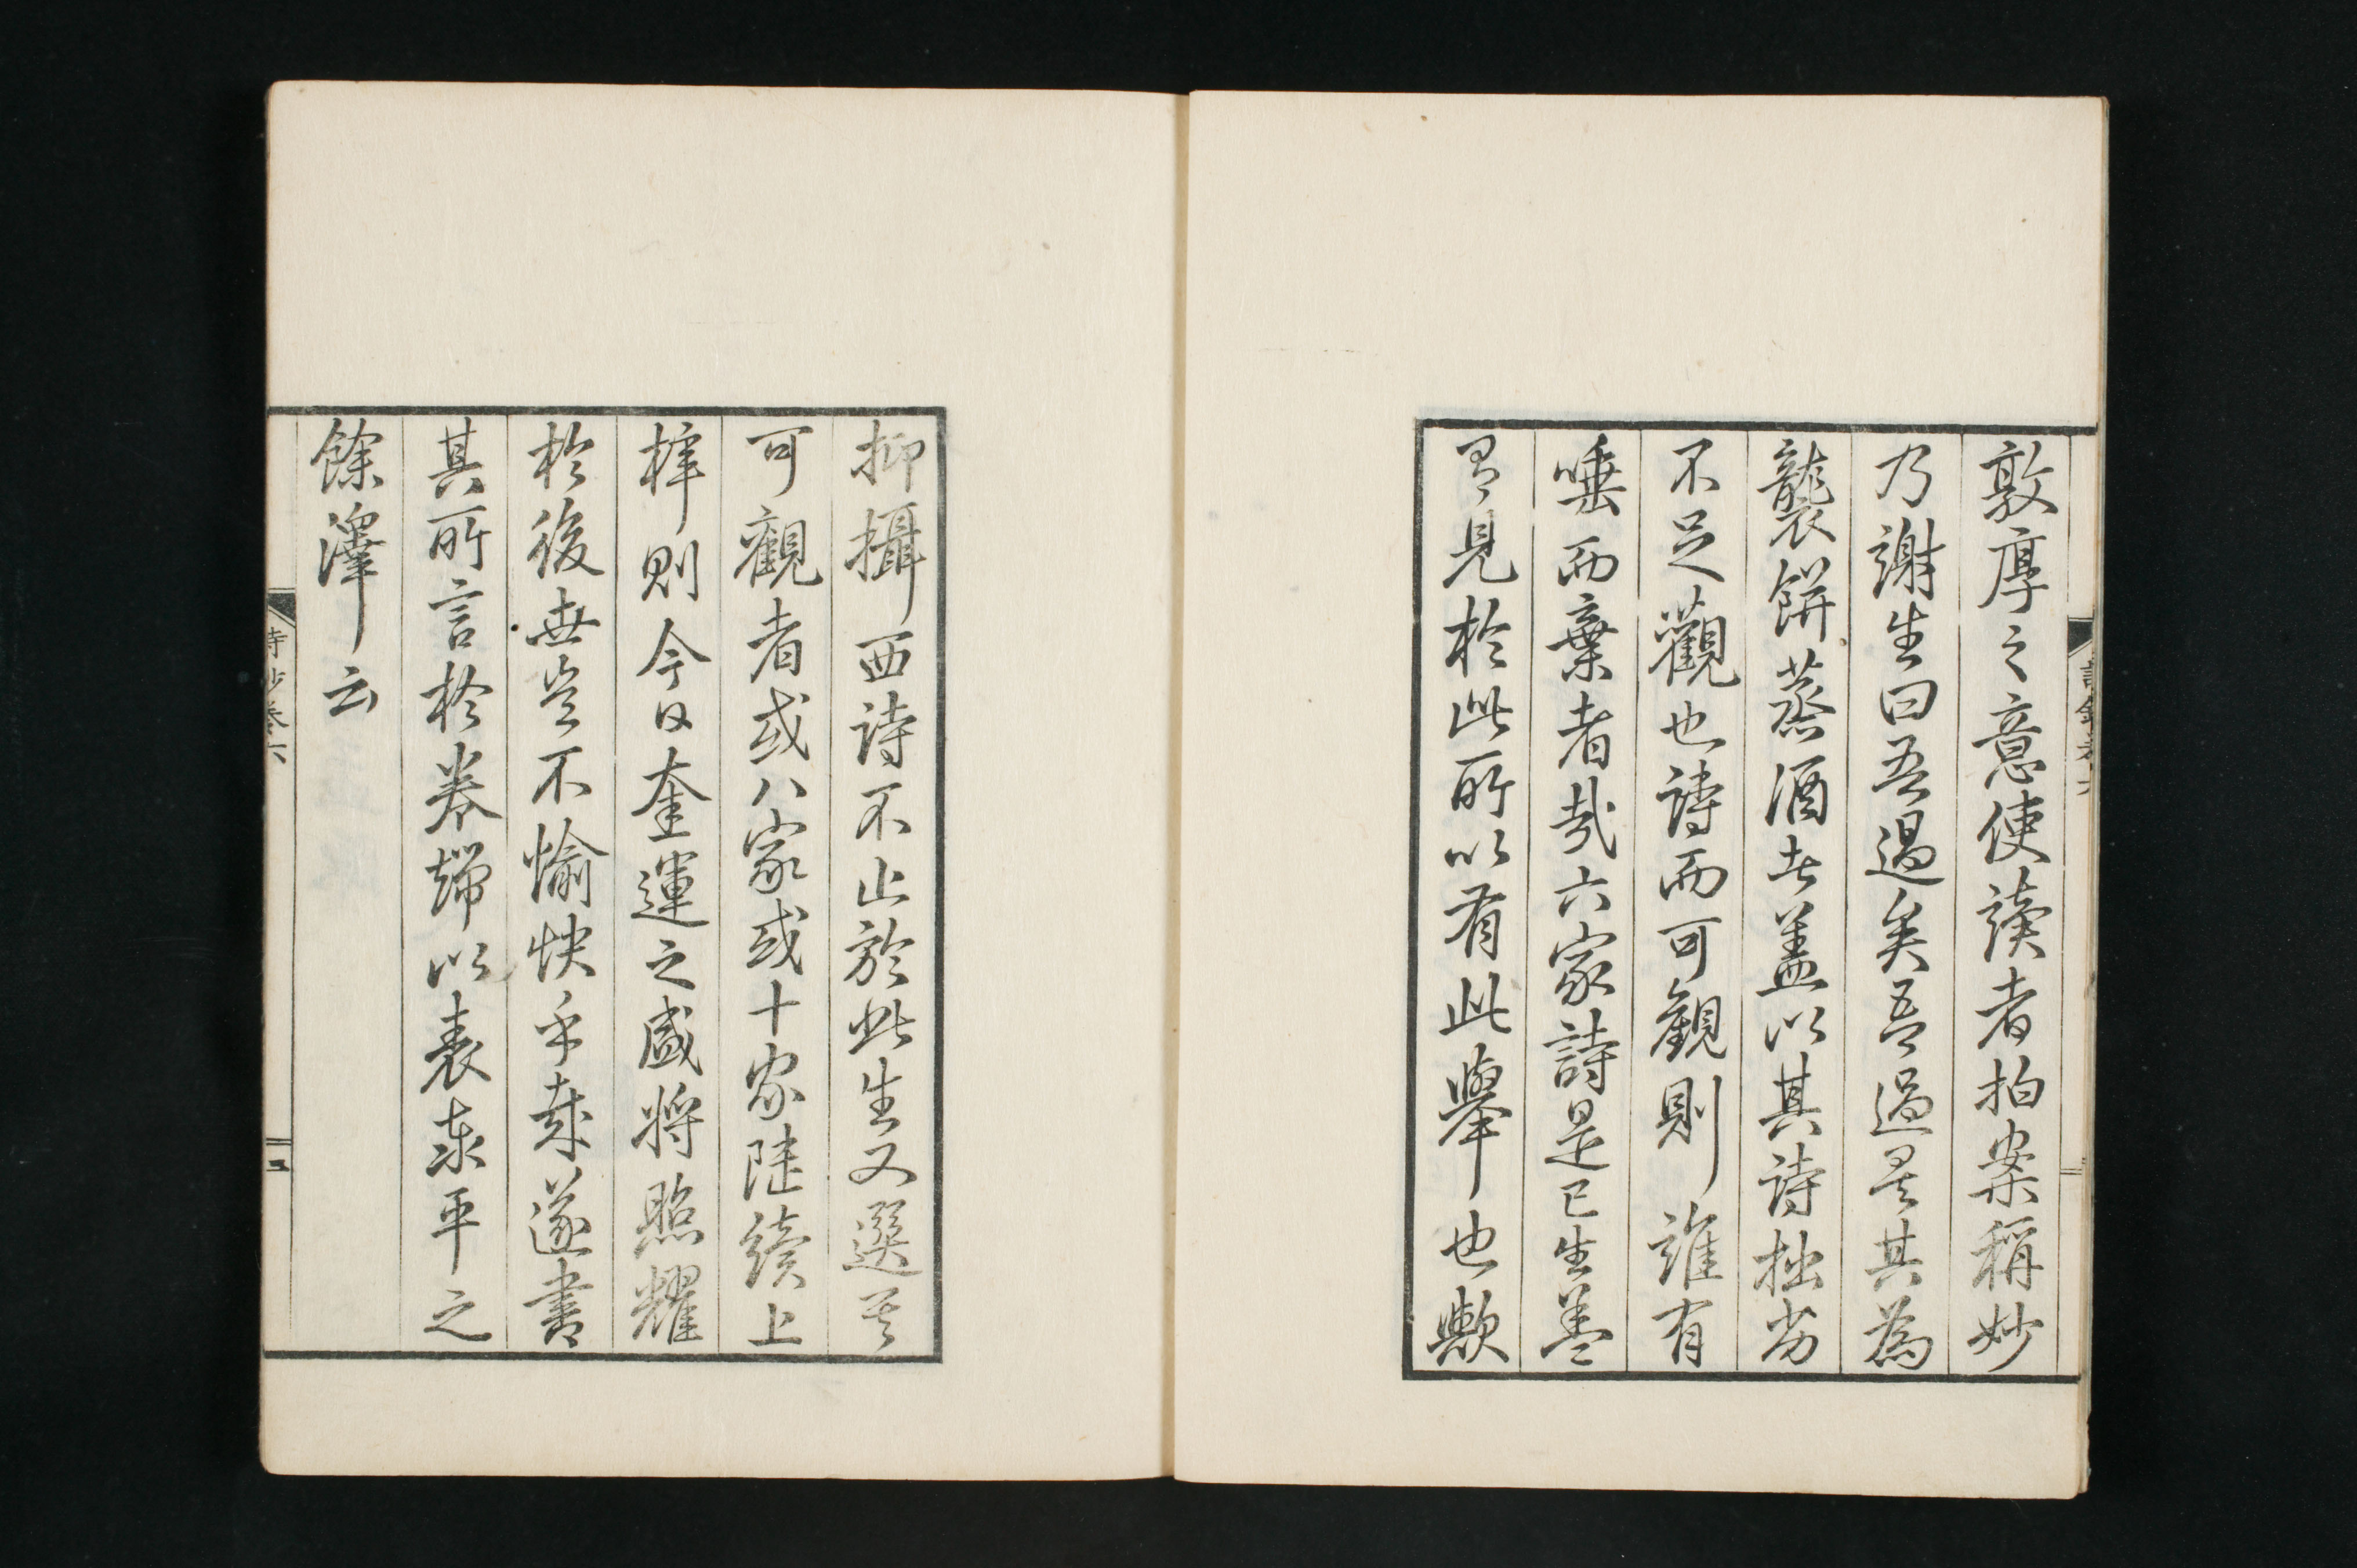 敦厚之意使讀者拍案稱妙
乃謝生曰吾過矣吾過矣其為
襲餅蒸酒者蓋以其詩拙劣
不足觀也詩而可觀則誰有
唾而棄者哉六家詩是已生蓋
有見於此所以有此舉也歟
抑攝西詩不止於此生又選其
可觀者或八家或十家陸續上
梓則今日奎運之盛將照耀
於後世豈不愉快乎哉遂書
其所言於卷端以表承平之
餘澤云
詩鈔卷六